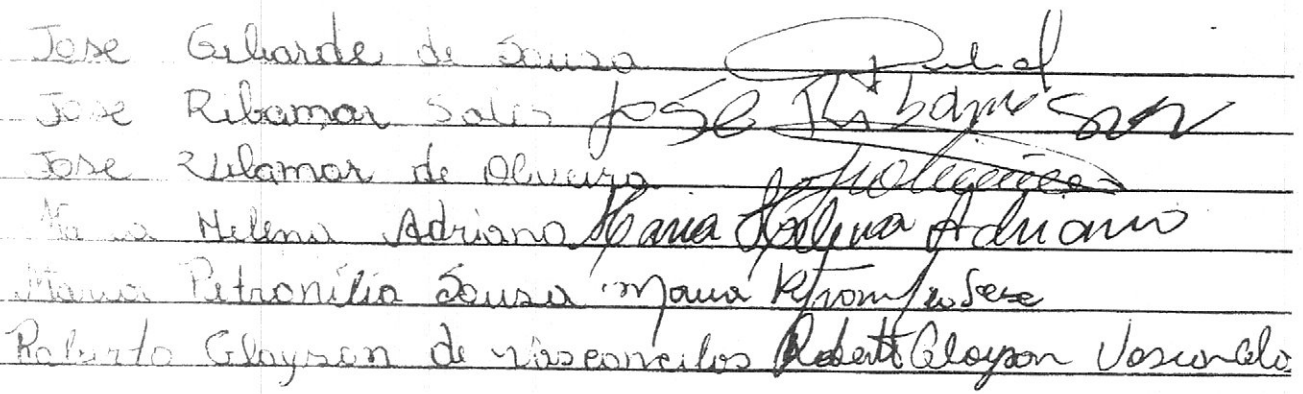 Jose Gilarde de Sousa
Jose Ribamar Sales José Ribamar
Jose Vilamar de Oliveira
Maria Helena Adriano Maria Helena Adriano
Maria Petronília Sousa Maria
Roberto Glayson de Vasconcelos Robert Glayson Vasconcelo